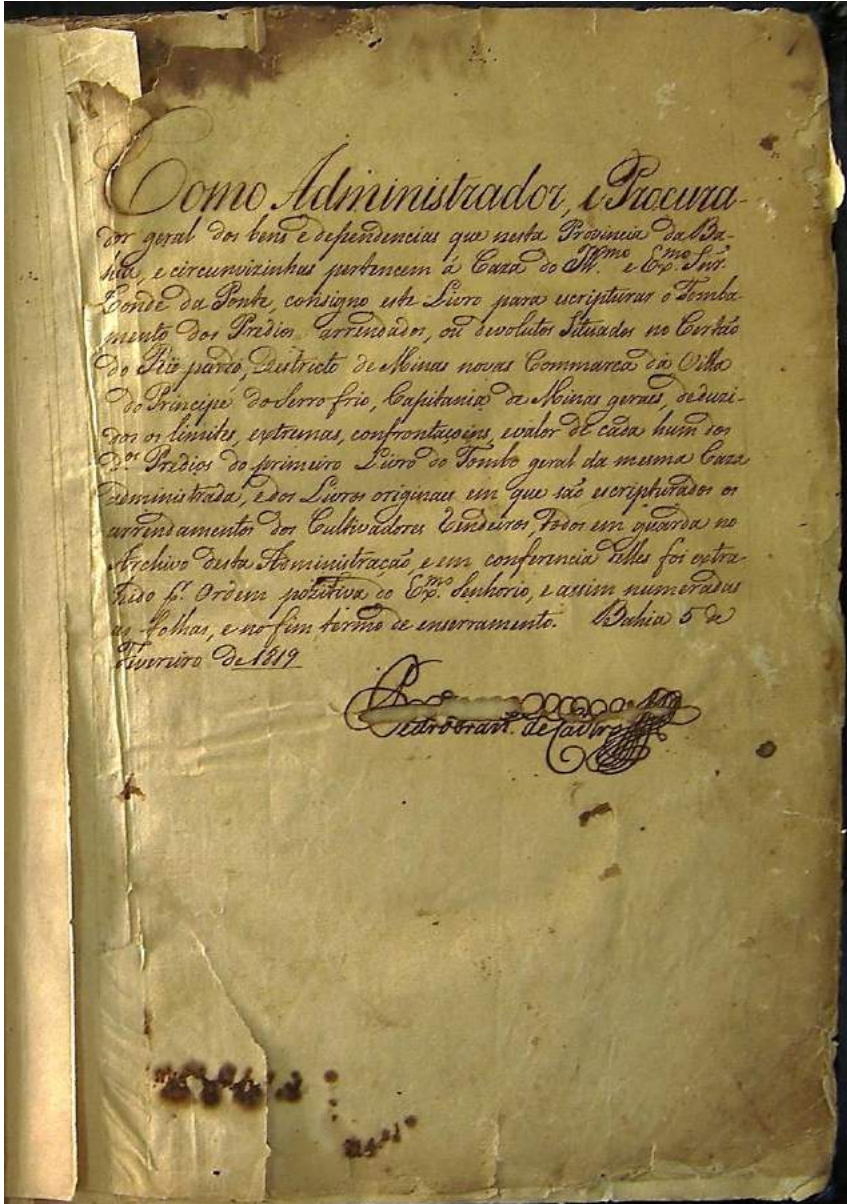 Como Administrador, e Procura-
dor geral dos bens e dependencias que nesta Provincia da Ba-
hia, e circunvizinhas pertencem á Caza do Ill.mo e Ex.mo Snr.
Conde da Ponte, consigno este Livro para escripturar o Tomba-
mento dos Predios arrendados, ou devolutos Situados no Certão
do Rio pardo, Districto de Minas novas Commarca da Villa
do Principe do Serro frio, Capitania de Minas geraes, deduzi-
dos os limites, extremas, confrontaçoens, e valor de cada hum dos
d.os Predios do primeiro Livro do Tombo geral da mesma Caza
administrada, e dos Livros originaes em que são escripturados os
arrendamentos dos Cultivadores Rendeiros, todos em guarda no
Archivo desta Administração, e em conferencia delles foi extra-
hido p.r Ordem pozitiva do Ex.mo Senhorio, e assim numeradas
as folhas, e no fim termo de enserramento. Bahia 5 de
Fevereiro de 1819
Pedro Fran.co de Castro